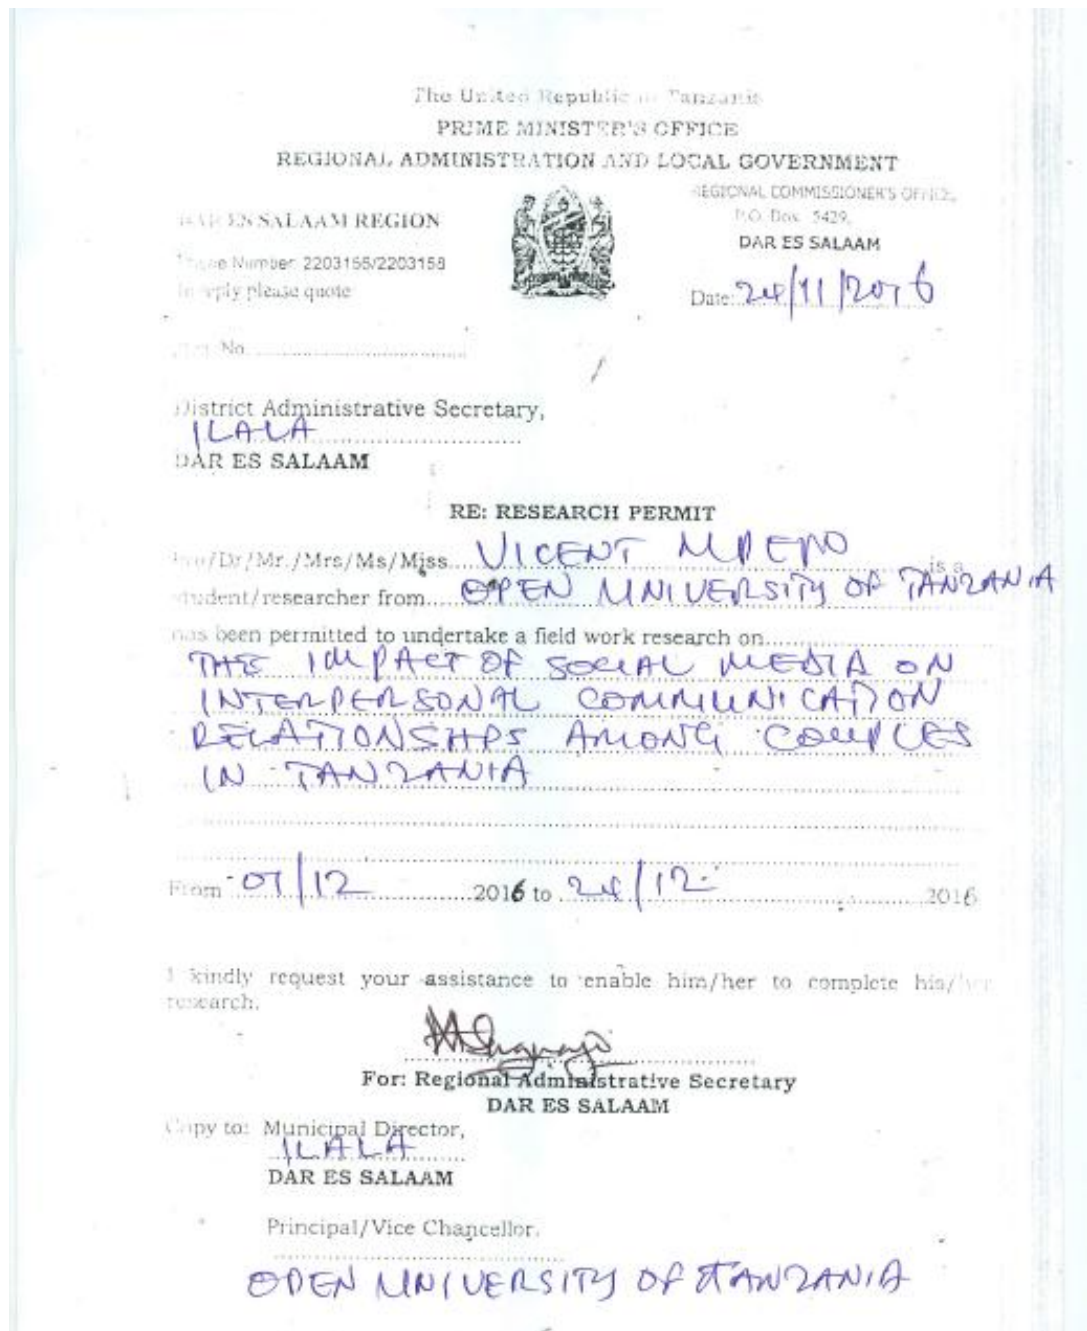 The United Republic of Tanzania
PRIME MINISTER'S OFFICE
REGIONAL ADMINISTRATION AND LOCAL GOVERNMENT
DAR ES SALAAM REGION
Phone Number: 2203156/2203158
In reply please quote
No.
REGIONAL COMMISSIONER'S OFFICE,
P.O. Box 5429,
DAR ES SALAAM
Date: 24/11/2016
District Administrative Secretary,
ILALA
DAR ES SALAAM
RE: RESEARCH PERMIT
/Dr/Mr./Mrs/Ms/Miss VICENT is a
student/researcher from OPEN UNIVERSITY OF TANZANIA
has been permitted to undertake a field work research on
THE IMPACT OF SOCIAL MEDIA ON
INTERPERSONAL COMMUNICATION
RELATIONSHIPS AMONG COUPLES
IN TANZANIA
From 01/12 2016 to 24/12 2016
I kindly request your assistance to enable him/her to complete his/her
research.
For: Regional Administrative Secretary
DAR ES SALAAM
Copy to: Municipal Director,
ILALA
DAR ES SALAAM
Principal/Vice Chancellor.
OPEN UNIVERSITY OF TANZANIA